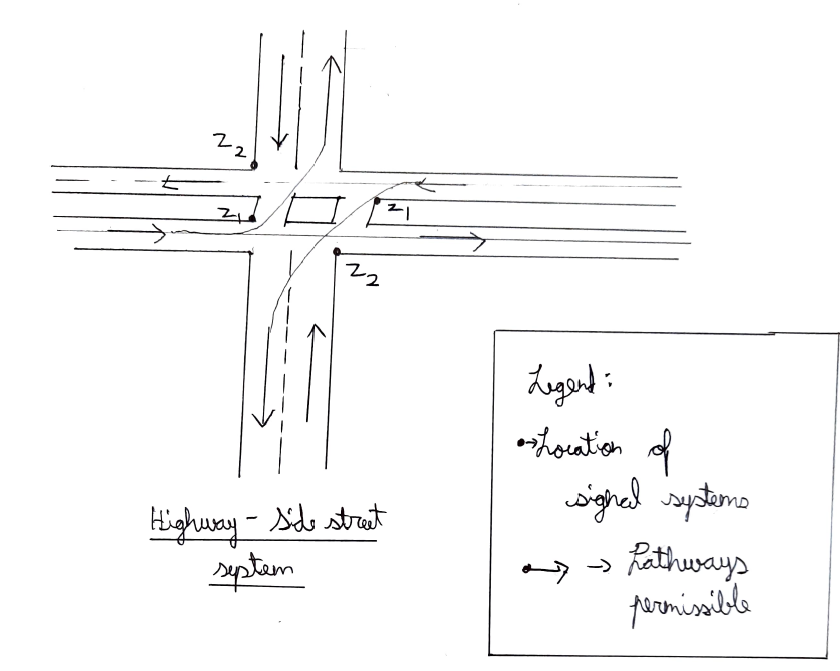 Z2
Z1
Z1
Z2
Highway - Side street
system
Legend:
→ Location of
signal systems
→ Pathways
permissible